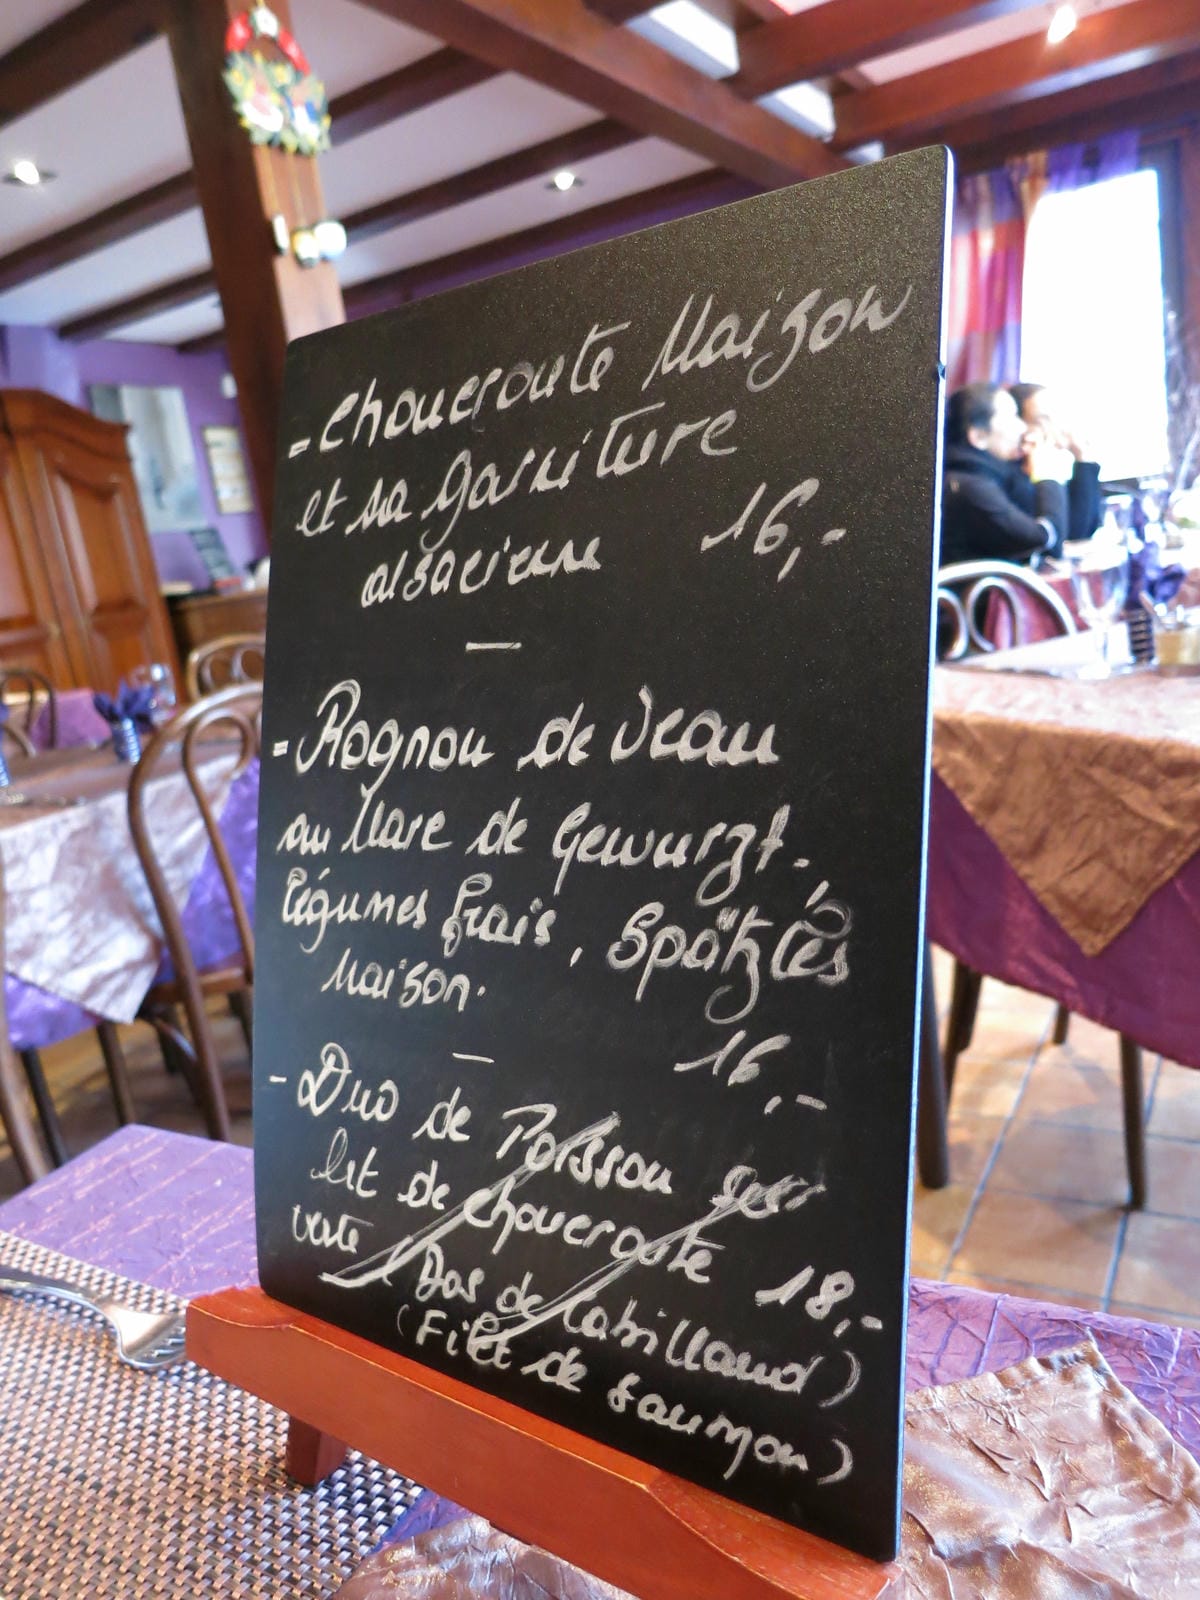 - Choucroute Maison
et sa Garniture
alsacienne 16,-
—
- Rognon de Veau
au Marc de Gewurzt.,
légumes frais, Spätzlés
Maison.
16,-
—
- Duo de Poisson sur
lit de choucroute 18,-
verte (Dos de Cabillaud)
(Filet de saumon)